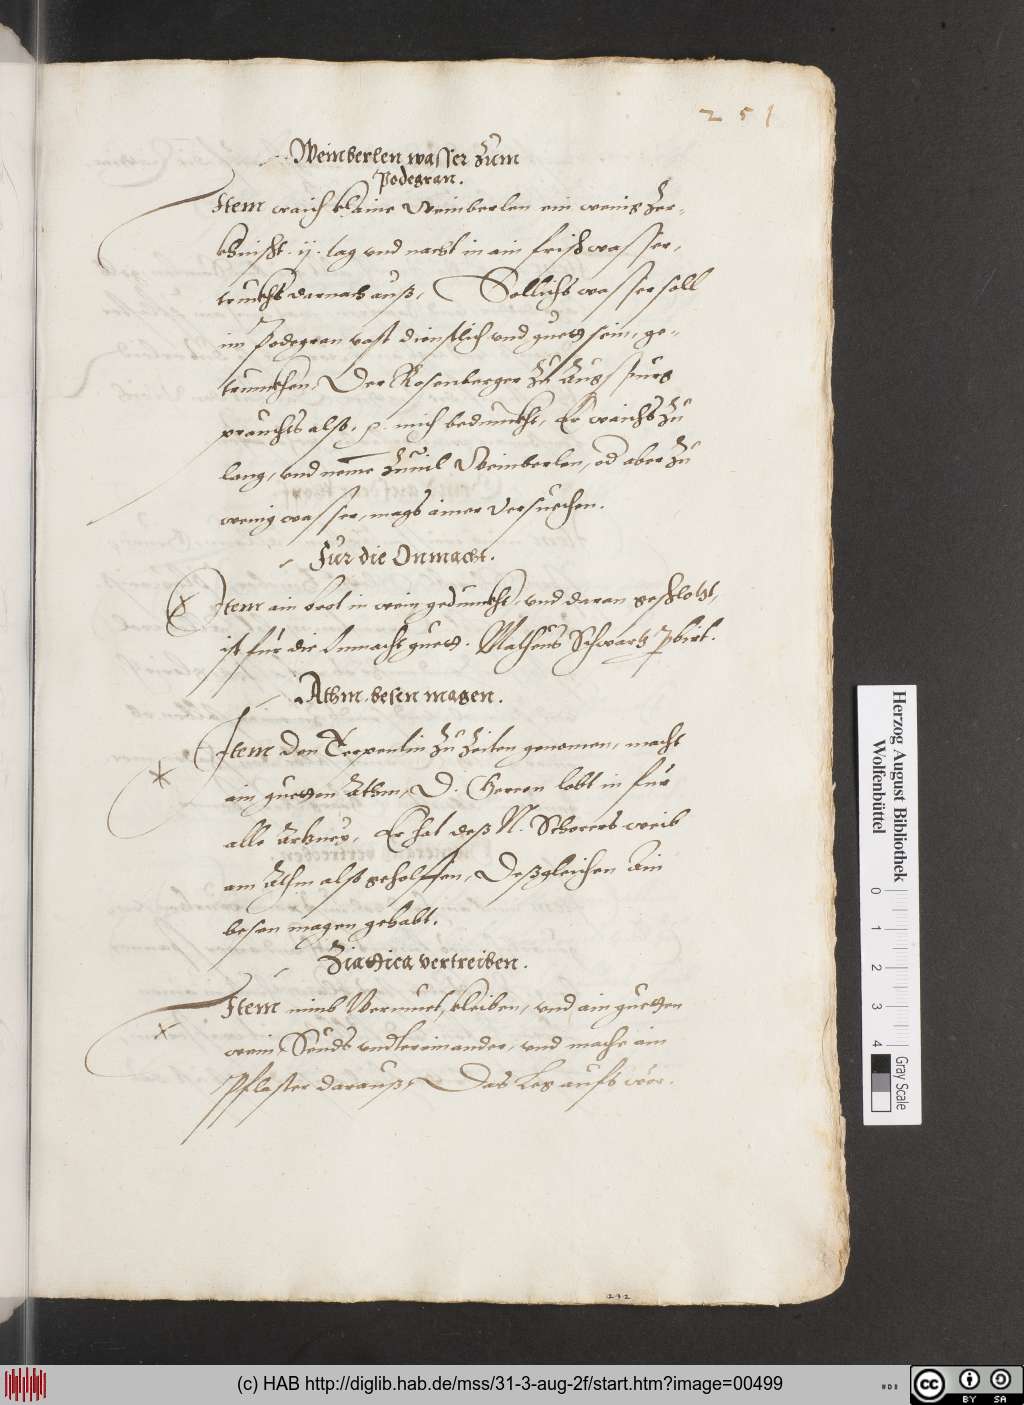 251
Weinberlen wasser zum
Podegran.
Item waich klaine Weinberlen ein wenig zer-
khnischt .ij. tag vnd nacht in ain frisch wasser,
trinckhs darnach auß, Sollichs wasser soll
im Podegran vast dienstlich vnd guett sein, ge-
trunckhen. Der Rosenberger zu Augspurg
prauchts also, mich bedunckht, Er waichts zu
lang, vnd neme zuuil Weinberlen, od aber zu
wenig wasser, mags aimer versuechen.
Für die Onmacht.
Item ain brot in wein gedunckht, vnd daran geschlotzt,
ist für die Onmacht guett. Matheus Schwartz
Athm. besen magen.
Item Den Terpentin zu zeiten genomen, macht
ain guetten Athm, D. lobt in für
alle Artzney, Er hat deß N. Schorers weib
am Athm also geholffen, Deßgleichen Ain
besen magen gehabt.
Ziattica vertreiben.
Item nimb Wermuet, kleiben, vnd ain guetten
wein, Seuds vndtereinander, vnd mache ain
Pflaster darauß, Das Leg aufs wee.
242
Herzog August Bibliothek
Wolfenbüttel
0 1 2 3 4
Gray Scale
(c) HAB http://diglib.hab.de/mss/31-3-aug-2f/start.htm?image=00499
cc BY SA